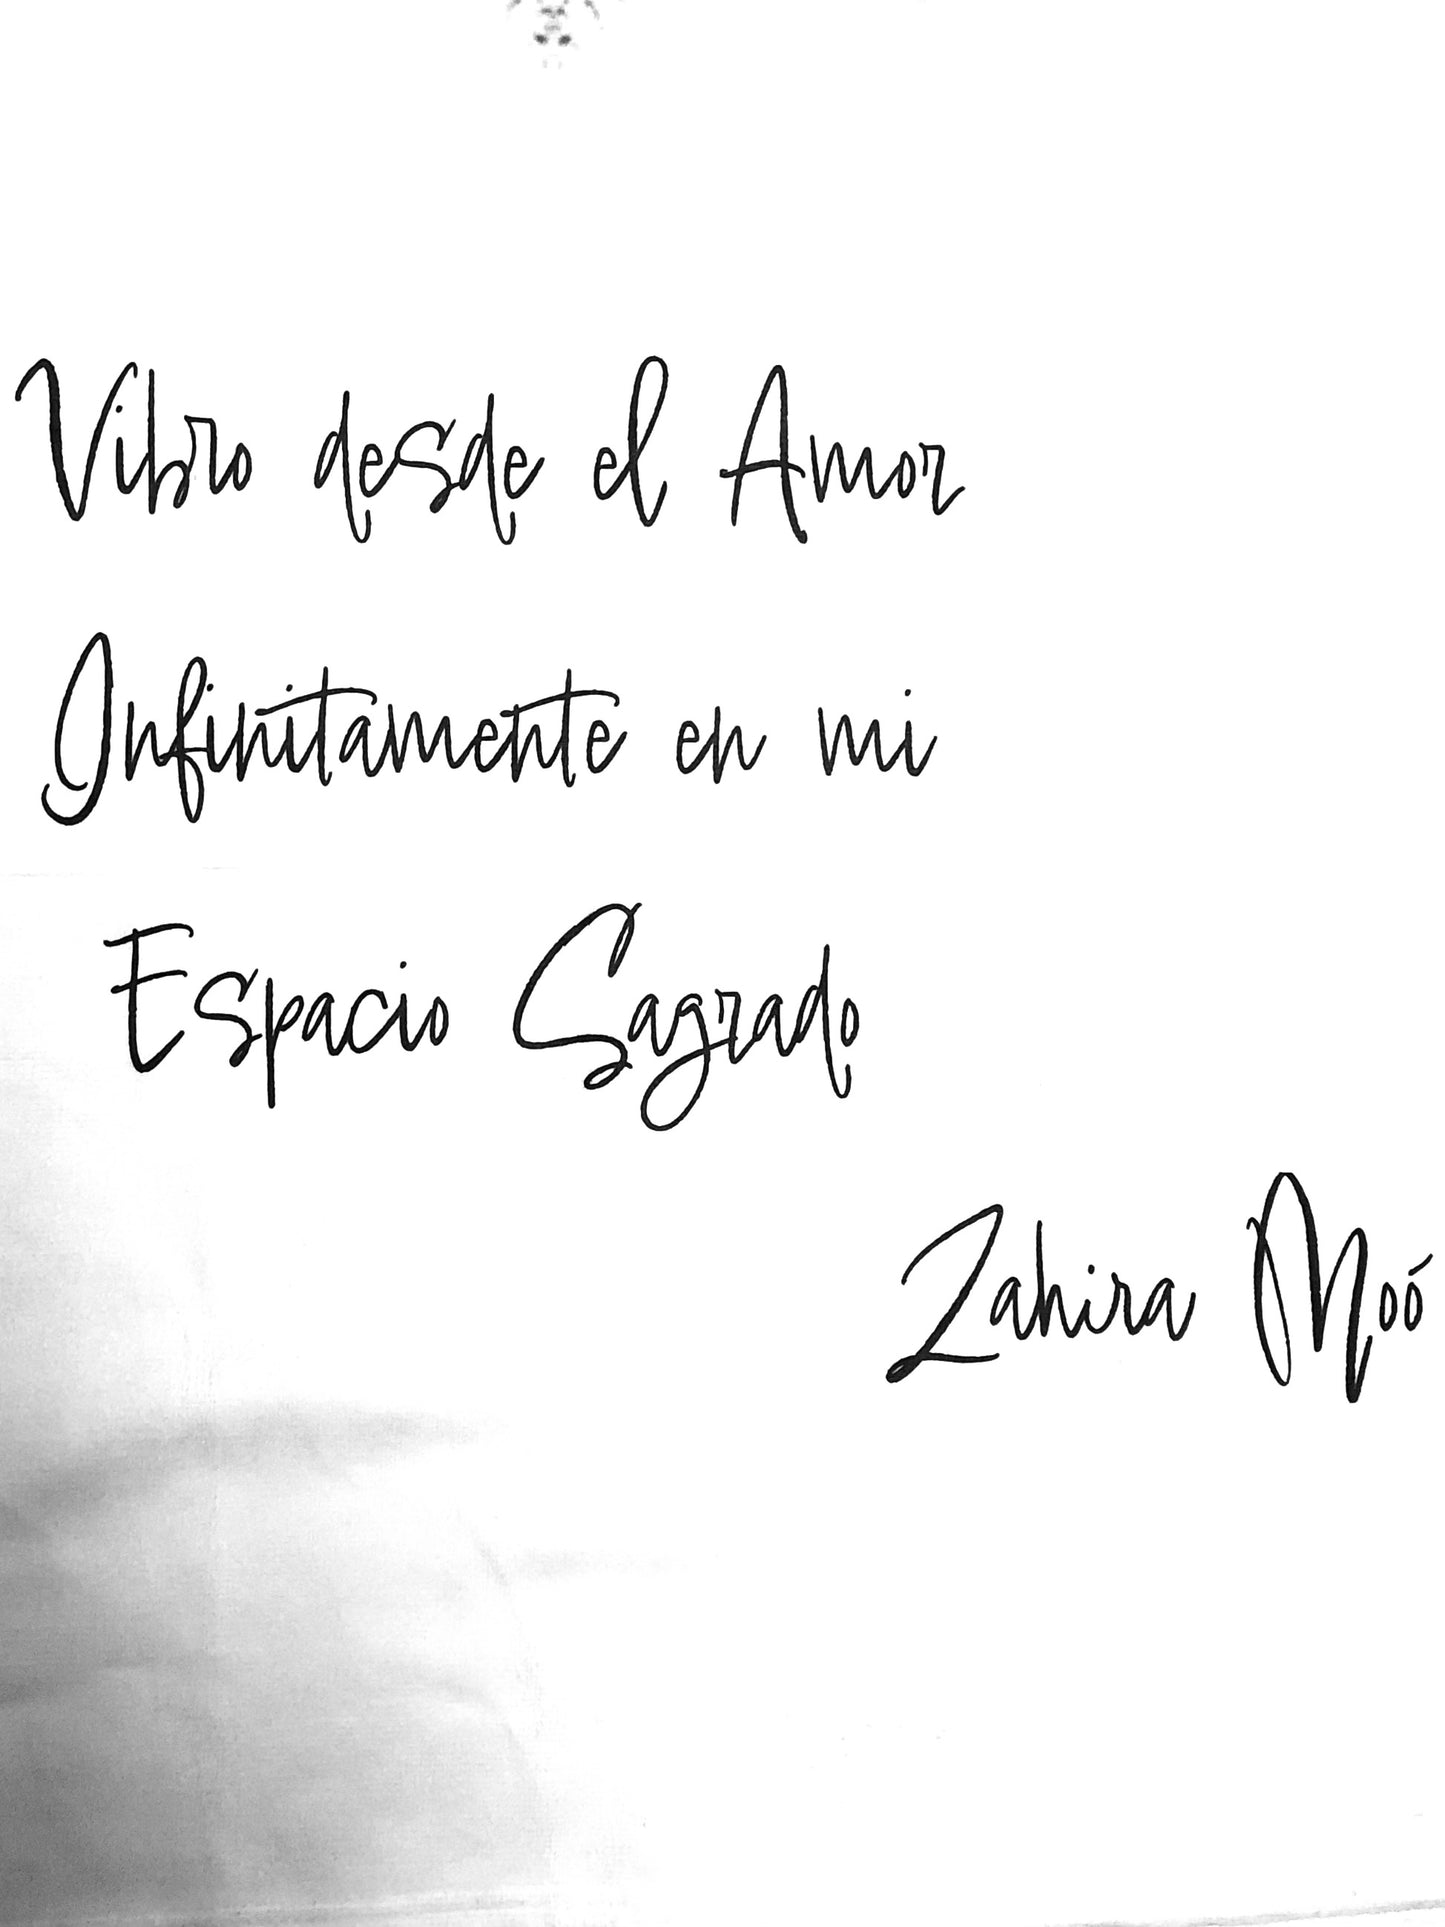 Vibro desde el Amor
Infinitamente en mi
Espacio Sagrado
Zahira Moó